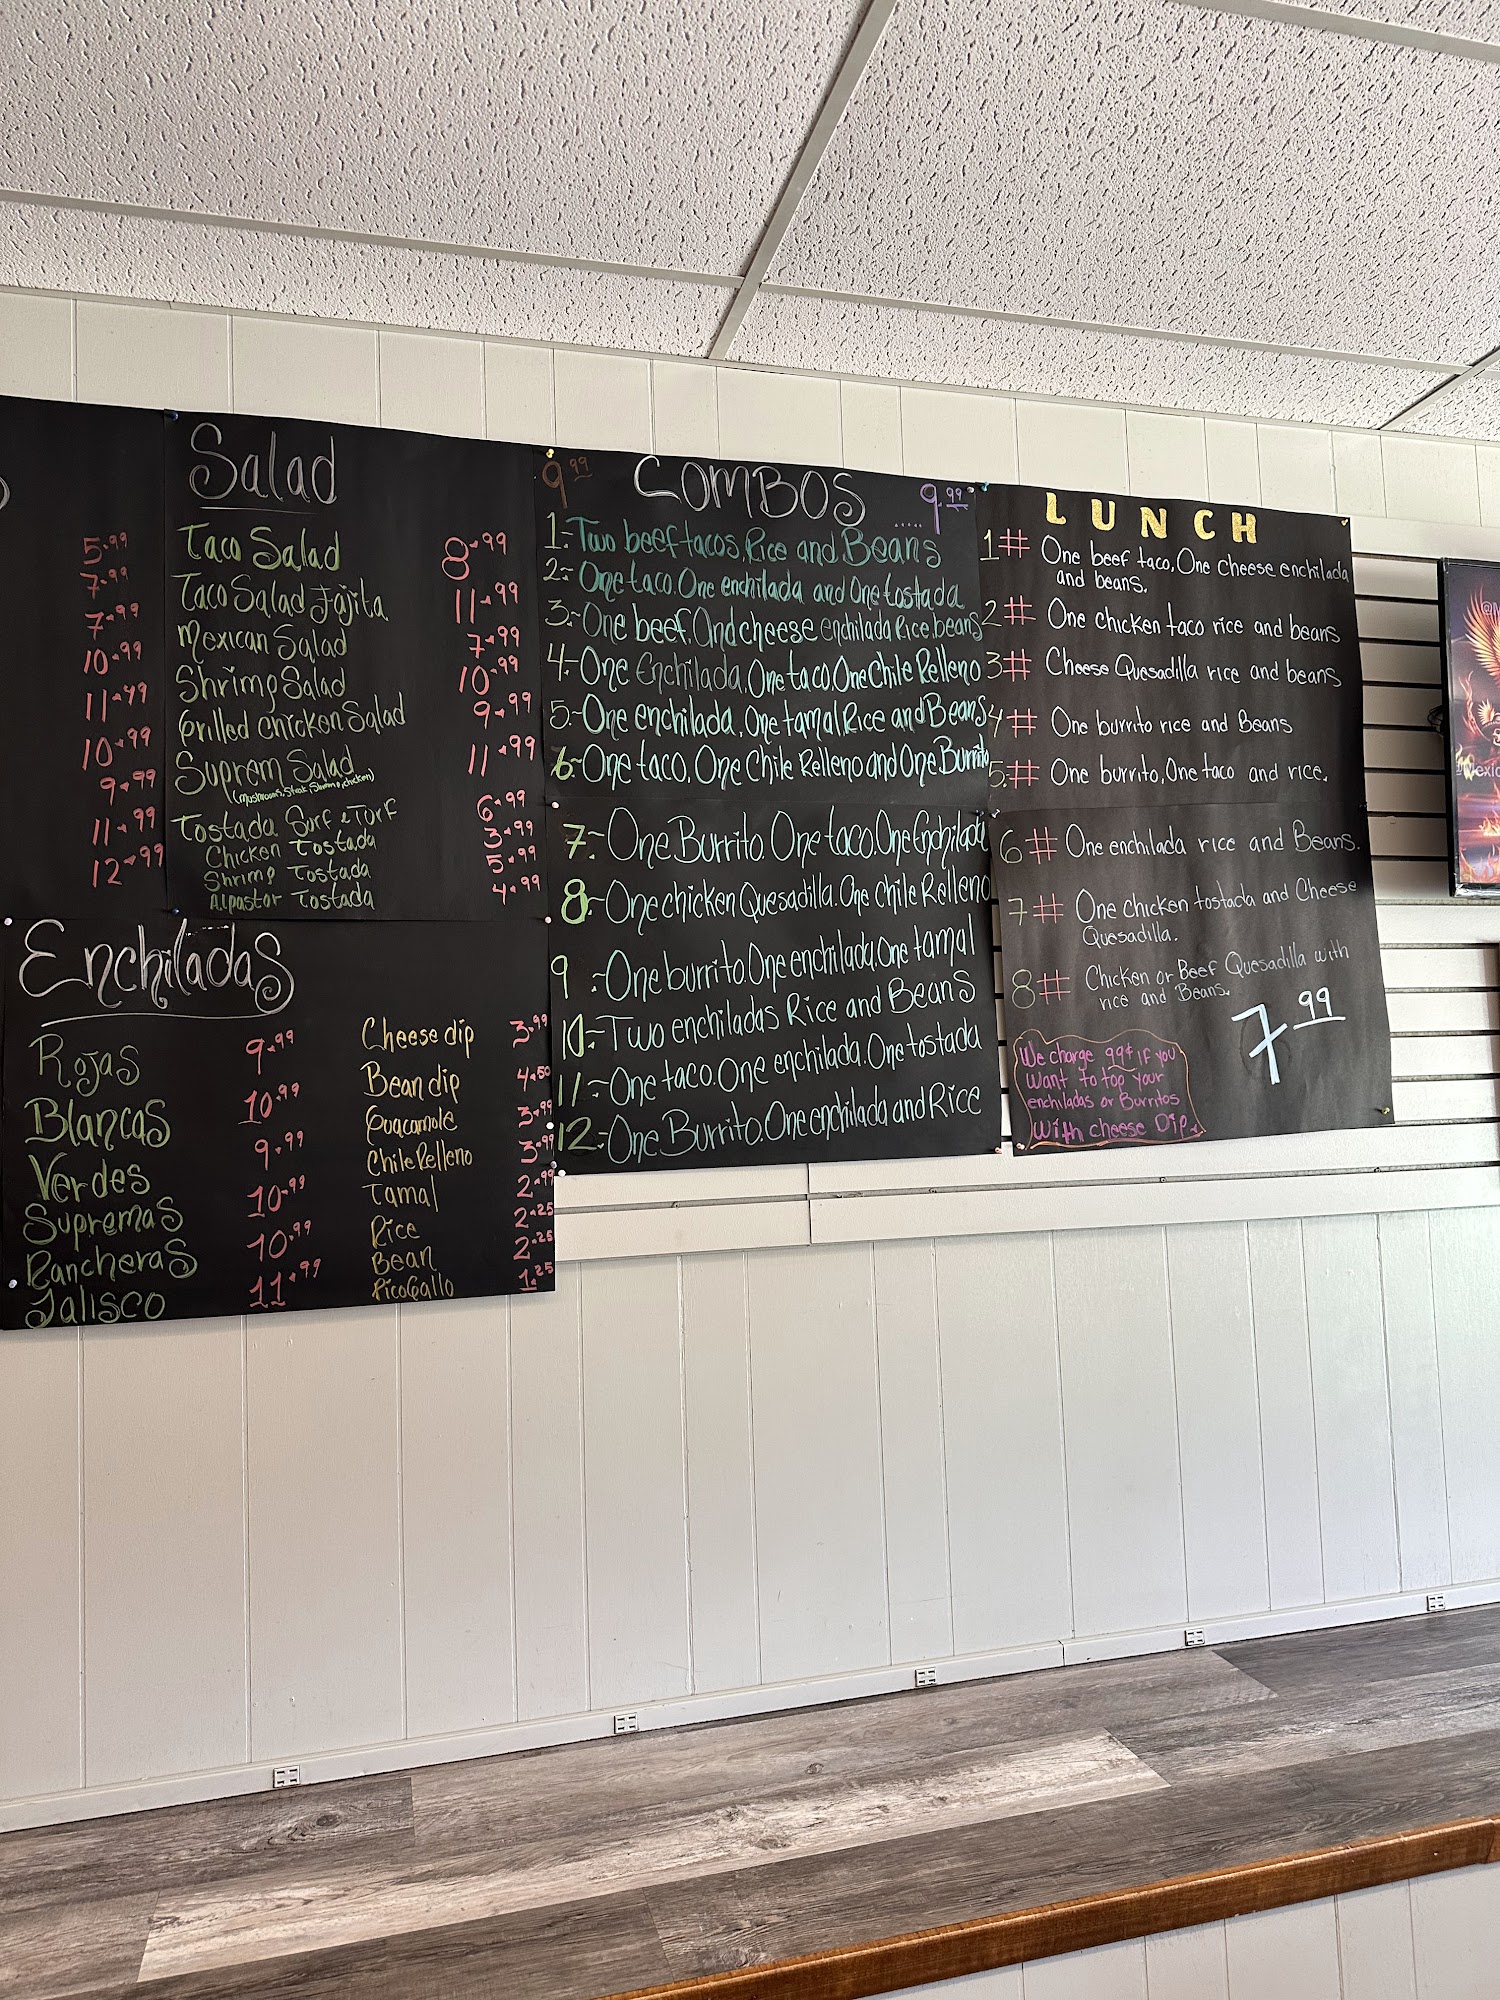 5.99
7.99
7.99
10.99
11.49
10.99
9.99
11.99
12.99
Salad
Taco Salad 8.99
Taco Salad Fajita 11.99
Mexican Salad 7.99
Shrimp Salad 10.99
Grilled chicken Salad 9.99
Suprem Salad 11.99
(Mushrooms, Steak, Shrimp, chicken)
Tostada Surf & Turf 6.99
Chicken Tostada 3.99
Shrimp Tostada 5.99
Alpastor Tostada 4.99
Enchiladas
Rojas 9.99
Blancas 10.99
Verdes 9.99
Supremas 10.99
Rancheras 10.99
Jalisco 11.99
Cheese dip 3.99
Bean dip 4.50
Guacamole 3.99
Chile Relleno 3.99
Tamal 2.99
Rice 2.25
Bean 2.25
Pico Gallo 1.25
9.99 COMBOS 9.99
1.-Two beef tacos, Rice and Beans
2.-One taco. One enchilada and One tostada
3.-One beef. And cheese enchilada Rice beans
4.-One Enchilada. One taco. One Chile Relleno
5.-One enchilada. One tamal Rice and Beans
6.-One taco. One Chile Relleno and One Burrito
7.-One Burrito. One taco. One Enchilada
8.-One chicken Quesadilla. One Chile Relleno
9.-One burrito. One enchilada. One tamal
10.-Two enchiladas Rice and Beans
11.-One taco. One enchilada. One tostada
12.-One Burrito. One enchilada and Rice
LUNCH
1# One beef taco, One cheese enchilada
and beans.
2# One chicken taco rice and beans
3# Cheese Quesadilla rice and beans
4# One burrito rice and Beans
5.# One burrito, One taco and rice.
6# One enchilada rice and Beans.
7# One chicken tostada and Cheese
Quesadilla.
8# Chicken or Beef Quesadilla with
rice and Beans.
7.99
We charge 99¢ if you
want to top your
enchiladas or Burritos
With cheese Dip.